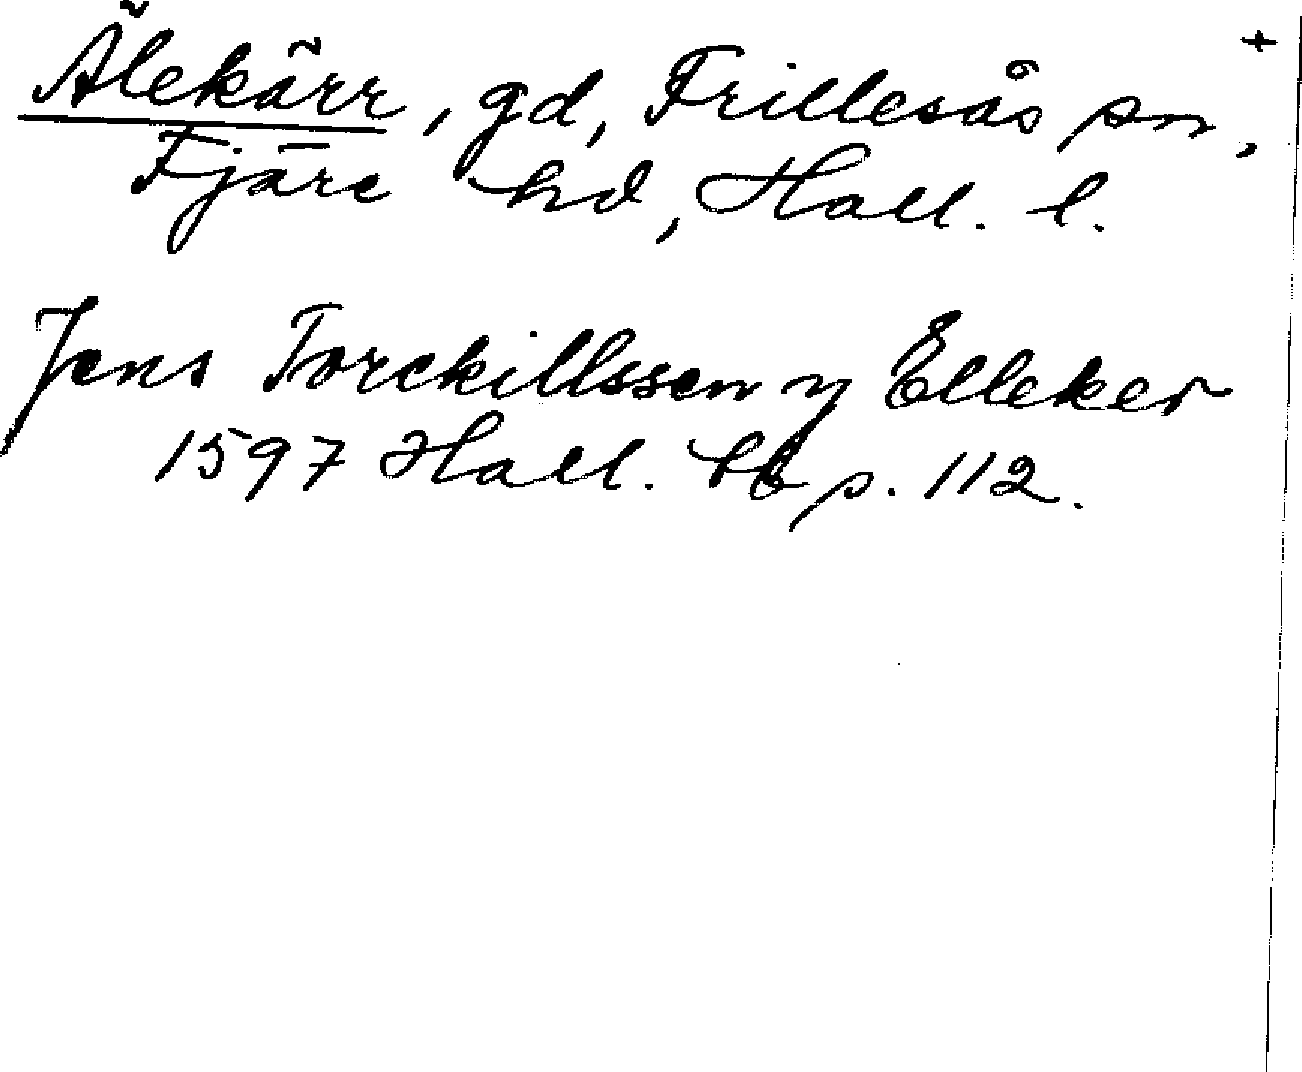 Älekärr, gd, Frillesås sn, +
Fjäre hd, Hall. l.
Jens Torckillssen y Elleker
1597 Hall. lb p. 112.